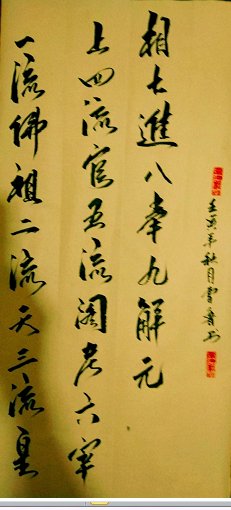 一流佛祖二流天三流皇
上四流官五流阁老六宰
相七進八举九解元
壬寅年秋月